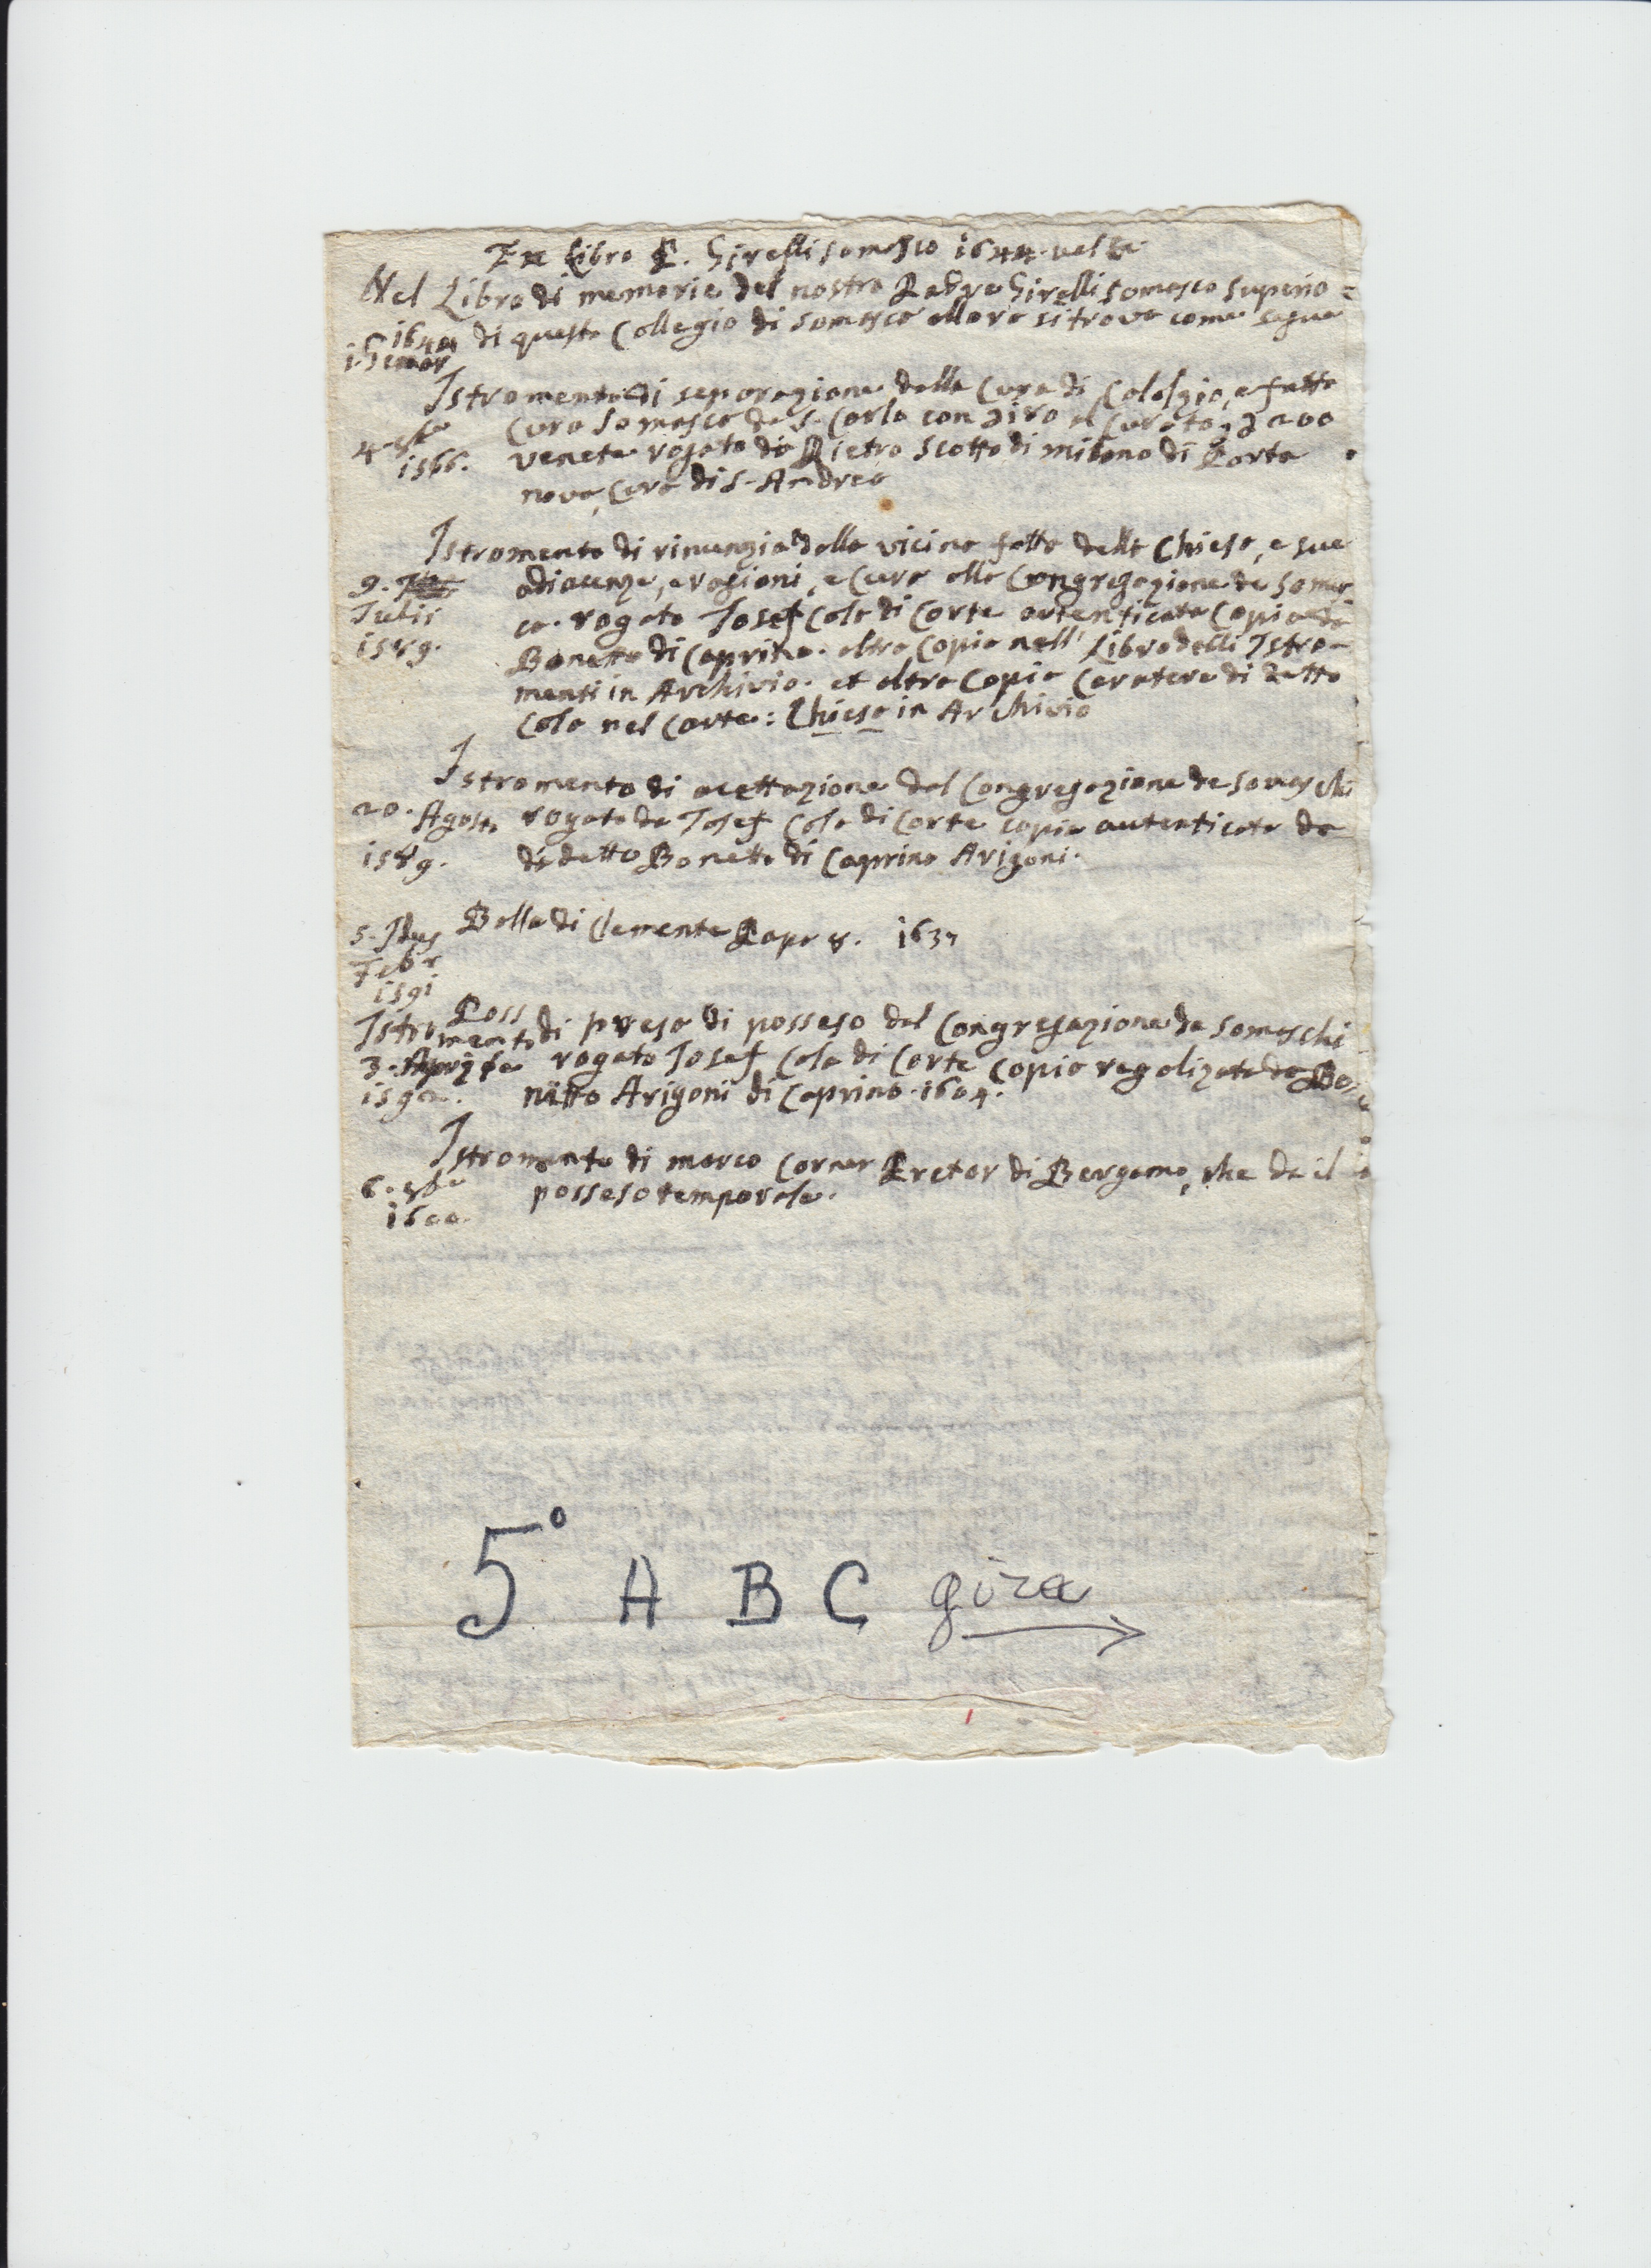 Ex Libro P. Girelli somasco 1644
Nel Libro di memorie del nostro Padre Girelli somasco superio=
1644 di questo Collegio di somasca allora si trova come segue
Istromento di separazione della Cura di Calolzio, e fatta
Cura Somasca da S. Carlo con
4 8bre
1566. venete rogato da Pietro Scotto di milano di Porta
nova, Cura di S. Andrea
Istromento di rinunzia della vicina fatta della Chiesa, e sue
9. adiacenze, e ragioni, e Cura alla Congregazione de somas
Julii ca. rogato Josef Cola di Corte autenticata Copia da
1589. Bonetto di Caprino. altra Copia nell' Libro delli Istro-
menti in Archivio. et altra Copia Caratere di detto
Cola nel Carte: Chiesa in Archivio
Istromento di acettazione del Congregazione de somaschi
20. Agosto rogato da Josef Cola di Corte copia autenticata da
1589. di detto Bonetto di Caprino Arigoni.
5. Idus Bolla di Clemente Papa 8. 1637
Febr
1591
Poss
Istromento di presa di posseso del Congregazione de somaschi
3. Aprile rogato Josef Cola di Corte Copia regolizata da Bo=
1592. nitto Arigoni di Caprino. 1604.
Istromento di marco Corner Pretor di Bergamo, che da il
6. 8bre posseso temporale.
1600.
5° A B C gira